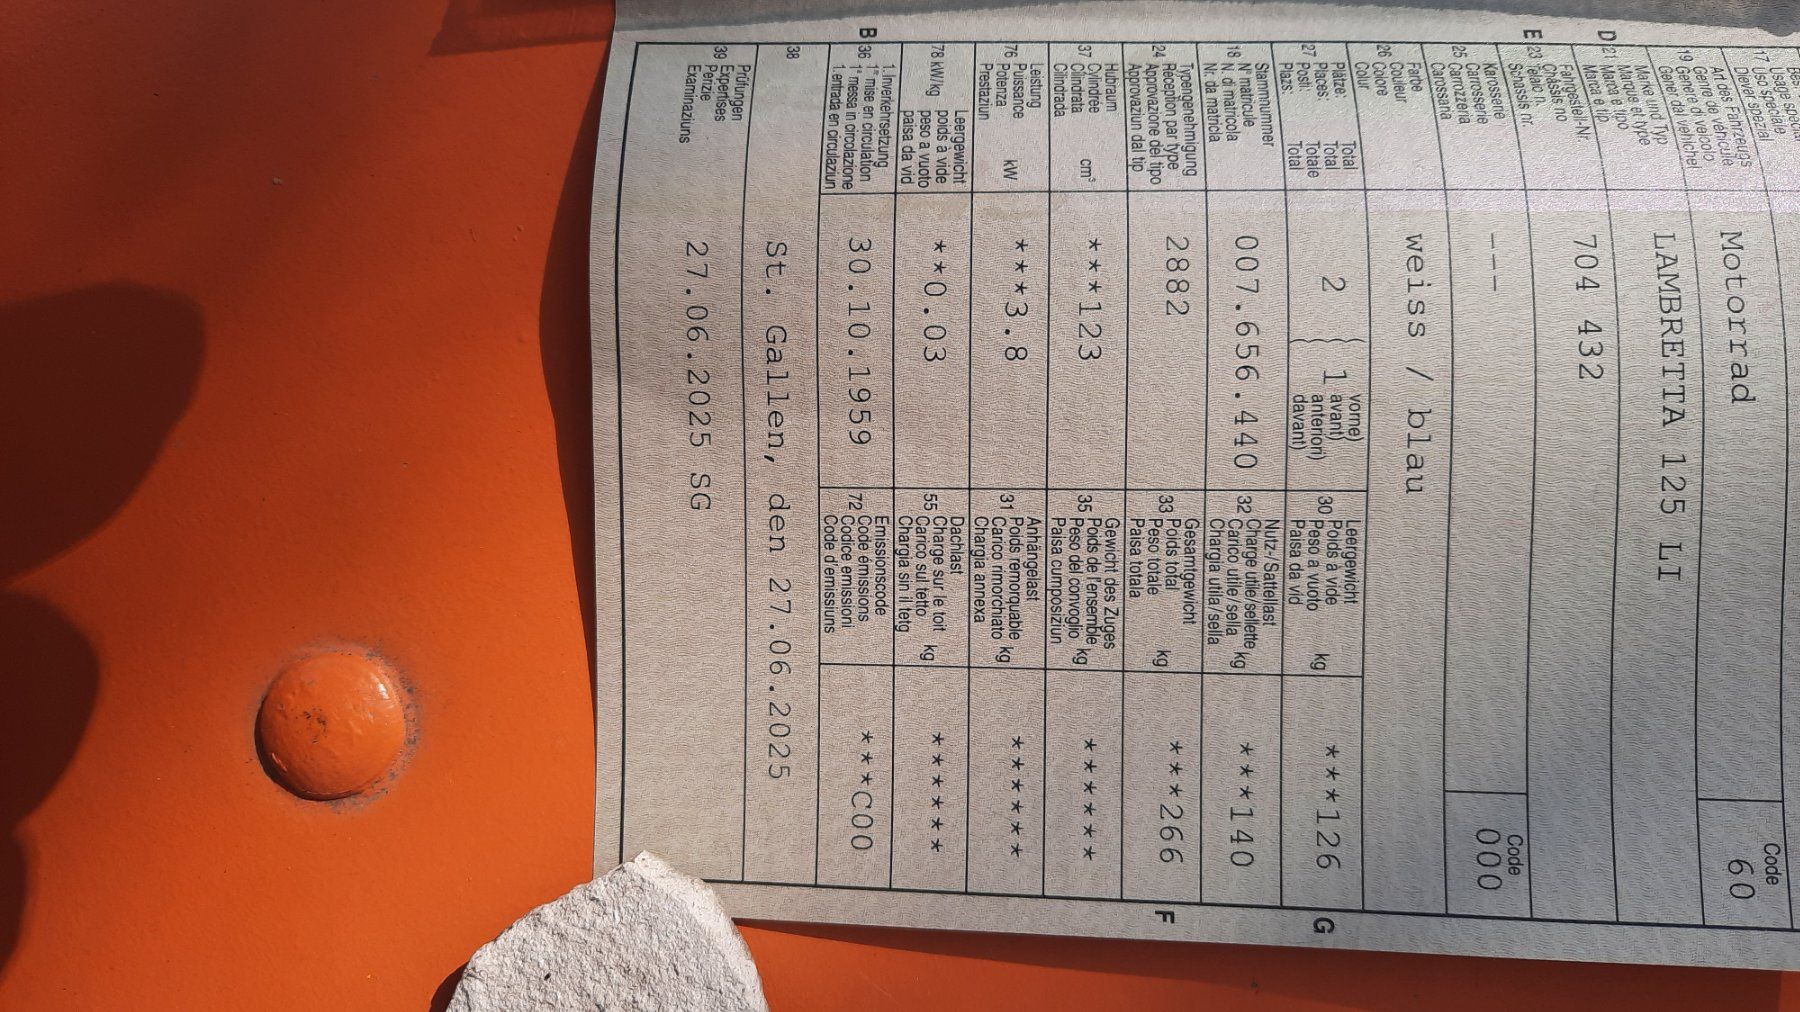 Usage special
17 Uso speciale
Diever spezial
Art des Fahrzeugs
Genre de véhicule
19 Genere di veicolo
Gener dal vehichel
Motorrad
Code
60
Marke und Typ
Marque et type
D 21 Marca e tipo
Marca e tip
LAMBRETTA 125 LI
Fahrgestell-Nr.
Châssis no
E 23 Telaio n.
Schassis nr.
704 432
Karosserie
Carrosserie
25 Carrozzeria
Carossaria
---
Code
000
Farbe
Couleur
26 Colore
Colur
weiss / blau
Plätze: Total
Places: Total
27 Posti: Totale
Plazs: Total
2
1
vorne)
avant)
anteriori)
davant)
Leergewicht
30 Poids à vide
Peso a vuoto kg
Paisa da vid
***126
G
Stammnummer
N° matricule
18 N. di matricola
Nr. da matricla
007.656.440
Nutz-/Sattellast
Charge utile/sellette
32 Carico utile/sella kg
Chargia utila/sella
***140
Typengenehmigung
Réception par type
24 Approvazione del tipo
Approvaziun dal tip
2882
Gesamtgewicht
33 Poids total
Peso totale kg
Paisa totala
***266
F
Hubraum
37 Cylindrée
Cilindrata cm³
Cilindrada
***123
Gewicht des Zuges
35 Poids de l'ensemble
Peso del convoglio kg
Paisa cumposiziun
******
Leistung
76 Puissance
Potenza kW
Prestaziun
***3.8
Anhängelast
31 Poids remorquable
Carico rimorchiato kg
Chargia annexa
******
Leergewicht
78 kW/kg poids à vide
peso a vuoto
paisa da vid
**0.03
Dachlast
55 Charge sur le toit
Carico sul tetto kg
Chargia sin il tetg
******
1. Inverkehrsetzung
B 36 1re mise en circulation
1a messa in circolazione
1. entrada en circulaziun
30.10.1959
Emissionscode
72 Code émissions
Codice emissioni
Code d'emissiuns
***C00
38
St. Gallen, den 27.06.2025
Prüfungen
39 Expertises
Perizie
Examinaziuns
27.06.2025 SG